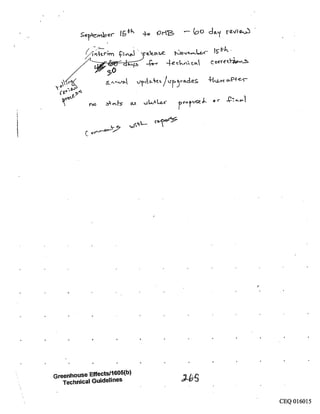 September 15th to OMB - 60 day review
interim final release November 15th
30 days for technical corrections
rolling
review
process
annual updates/upgrades thereafter
no stmts as whether proposed or final
Comments with reports
Greenhouse Effects/1605(b)
Technical Guidelines
265
CEQ 016015